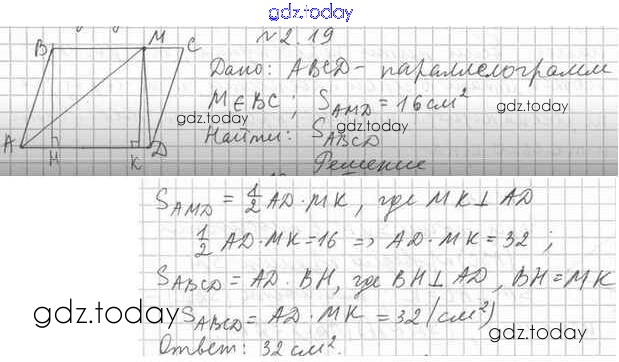 gdz.today
№2.19
B M C
Дано: ABCD - параллелограмм
M∈BC; S_AMD = 16 см²
gdz.today gdz.today
Найти: S_ABCD
gdz.today
A H K D
Решение
S_AMD = 1/2 AD·MK, где MK⊥AD
gdz.today
1/2 AD·MK=16 => AD·MK=32;
S_ABCD = AD·BH, где BH⊥AD, BH=MK
S_ABCD = AD·MK = 32 (см²)
gdz.today gdz.today
Ответ: 32 см².